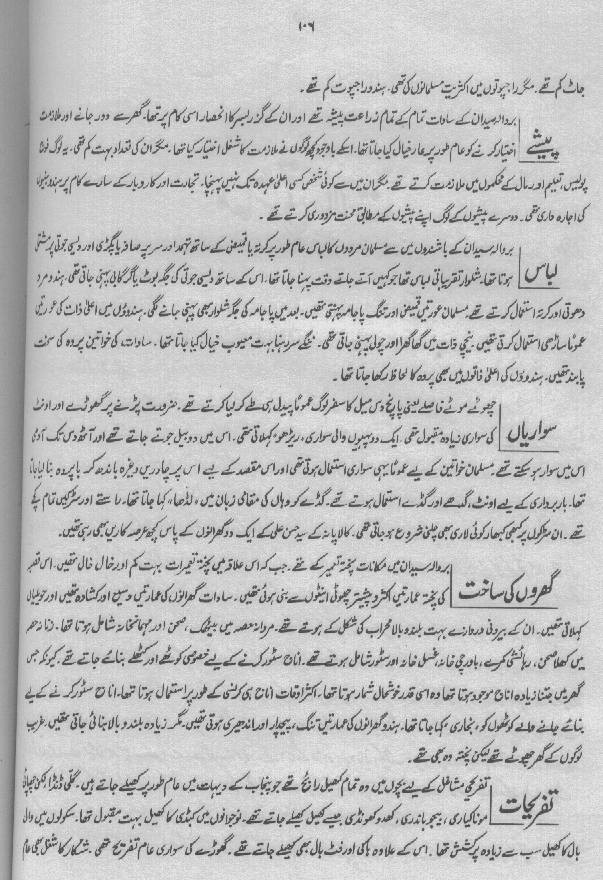 ۱۰۶
جاٹ کم تھے۔ مگر راجپوتوں میں اکثریت مسلمانوں کی تھی۔ ہندو راجپوت کم تھے۔
پیشے
بروالہ سیدان کے سادات تمام کے تمام زراعت پیشہ تھے اور ان کے گزر بسر کا انحصار اسی کام پر تھا۔ گھر سے دور جانے اور ملازمت
اختیار کرنے کو عام طور پر عار خیال کیا جاتا تھا۔ اسکے باوجود کچھ لوگوں نے ملازمت کا شغل اختیار کیا تھا۔ مگر ان کی تعداد بہت کم تھی۔ یہ لوگ فوج
پولیس، تعلیم اور مال کے محکموں میں ملازمت کرتے تھے۔ مگر ان میں سے کوئی شخص کسی اعلیٰ عہدہ تک نہیں پہنچا۔ تجارت اور کاروبار کے سارے کام پر ہندو بنیوں
کی اجارہ داری تھی۔ دوسرے پیشوں کے لوگ اپنے پیشوں کے مطابق محنت مزدوری کرتے تھے۔
لباس
بروالہ سیدان کے باشندوں میں سے مسلمان مردوں کا لباس عام طور پر کرتہ یا قمیض کے ساتھ تہمد اور سر پر صافہ یا پگڑی اور دیسی جوتی پر مشتمل
ہوتا تھا۔ شلوار تقریباتی لباس تھا جو کہیں آتے جاتے وقت پہنا جاتا تھا۔ اس کے ساتھ دیسی جوتی کی جگہ بوٹ یا گرگابی پہنی جاتی تھی۔ ہندو مرد
دھوتی اور کرتہ استعمال کرتے تھے۔ مسلمان عورتیں قمیض اور تنگ پاجامہ پہنتی تھیں۔ بعد میں پاجامہ کی جگہ شلوار بھی پہنی جانے لگی۔ ہندوؤں میں اعلیٰ ذات کی عورتیں
عموماً ساڑھی استعمال کرتی تھیں۔ نیچی ذات میں گھاگھرا اور چولی پہنی جاتی تھی۔ ننگے سر رہنا بہت معیوب خیال کیا جاتا تھا۔ سادات کی خواتین پردہ کی سخت
پابند تھیں۔ ہندوؤں کی اعلیٰ ذاتوں میں بھی پردہ کا لحاظ رکھا جاتا تھا۔
سواریاں
چھوٹے موٹے فاصلے یعنی پانچ دس میل کا سفر لوگ عموماً پیدل ہی طے کر لیا کرتے تھے۔ ضرورت پڑنے پر گھوڑے اور اونٹ
کی سواری زیادہ مقبول تھی۔ ایک دو پہیوں والی سواری، ریڑھو، کہلاتی تھی۔ اس میں دو بیل جوتے جاتے تھے اور آٹھ دس تک آدمی
اس میں سوار ہو سکتے تھے۔ مسلمان خواتین کے لیے عموماً یہی سواری استعمال ہوتی تھی اور اس مقصد کے لیے اس پر چادریں وغیرہ باندھ کر باپردہ بنا لیا جاتا
تھا۔ باربرداری کے لیے اونٹ، گدھے اور گڈے استعمال ہوتے تھے۔ گڈے کو وہاں کی مقامی زبان میں، لڈھا، کہا جاتا تھا۔ راستے اور سڑکیں تمام کچے
تھے۔ ان سڑکوں پر کبھی کبھار کوئی لاری بھی چلنی شروع ہو جاتی تھی۔ کالا پانہ کے سید حسن علی کے ایک دو گھرانوں کے پاس کچھ عرصہ کاریں بھی رہی تھیں۔
گھروں کی ساخت
بروالہ سیدان میں مکانات پختہ تعمیر کے تھے۔ جب کہ اس علاقہ میں پختہ تعمیرات بہت کم اور خال خال تھیں۔ اس قصبہ
کی پختہ عمارتیں اکثر و بیشتر چھوٹی اینٹوں سے بنی ہوئی تھیں۔ سادات گھرانوں کی عمارتیں وسیع اور کشادہ تھیں اور حویلیاں
کہلاتی تھیں۔ ان کے بیرونی دروازے بہت بلند و بالا محراب کی شکل کے ہوتے تھے۔ مردانہ حصہ میں بیٹھک، صحن اور مہمانخانہ شامل ہوتا تھا۔ زنانہ حصہ
میں کھلا صحن، رہائشی کمرے، باورچی خانہ، غسل خانہ اور سٹور شامل ہوتے تھے۔ اناج سٹور کرنے کے لیے خصوصی کوٹھے اور کٹھلے بنائے جاتے تھے کیونکہ جس
گھر میں جتنا زیادہ اناج موجود ہوتا تھا وہ اسی قدر خوشحال شمار ہوتا تھا۔ اکثر اوقات اناج ہی کرنسی کے طور پر استعمال ہوتا تھا۔ اناج سٹور کرنے کے لیے
بنائے جانے والے کوٹھوں کو، بخاری، کہا جاتا تھا۔ ہندو گھرانوں کی عمارتیں تنگ، پیچدار اور اندھیری ہوتی تھیں۔ مگر زیادہ بلند و بالا بنائی جاتی تھیں، غریب
لوگوں کے گھر چھوٹے تھے لیکن پختہ وہ بھی تھے۔
تفریحات
تفریحی مشاغل کے لیے بچوں میں وہ تمام کھیل رائج تھے جو پنجاب کے دیہات میں عام طور پر کھیلے جاتے ہیں۔ گلی ڈنڈا
کھدو کھونڈی جیسے کھیل کھیلے جاتے تھے۔ نوجوانوں میں کبڈی کا کھیل بہت مقبول تھا۔ سکولوں میں والی
بال کا کھیل سب سے زیادہ پرکشش تھا۔ اس کے علاوہ ہاکی اور فٹ بال بھی کھیلے جاتے تھے۔ گھوڑے کی سواری عام تفریح تھی۔ شکار کا شغل بھی عام